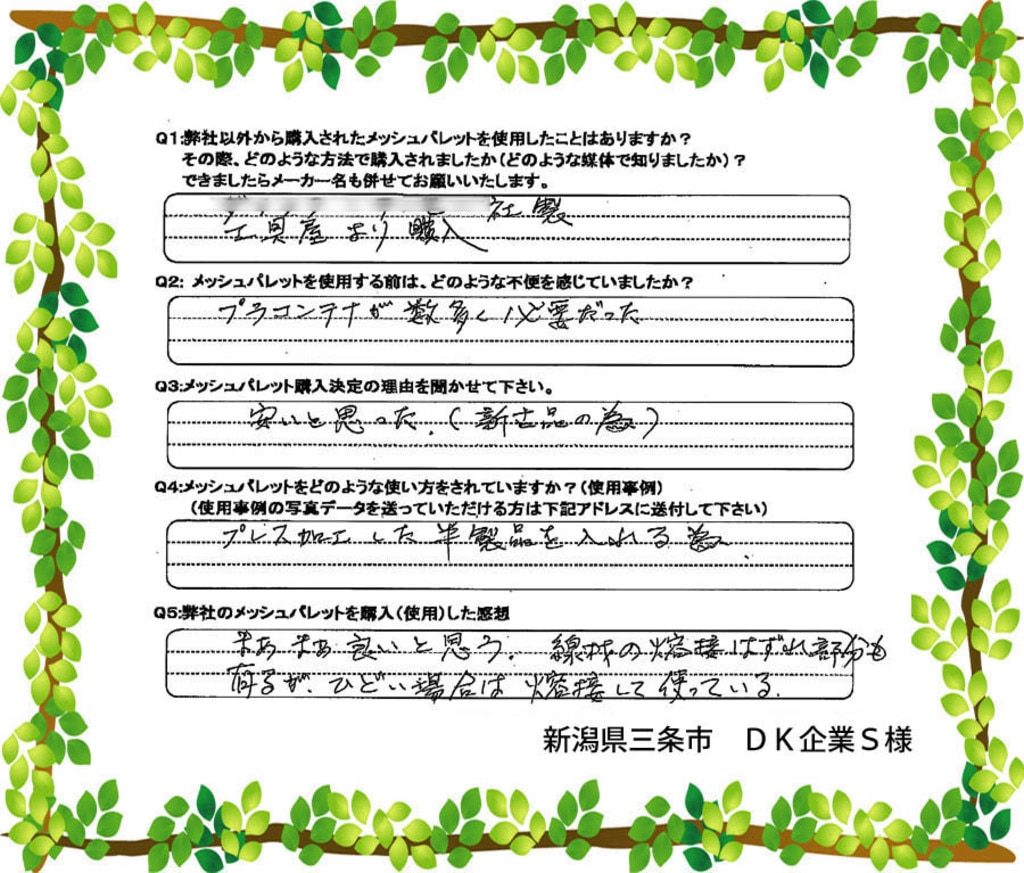 Q1:弊社以外から購入されたメッシュパレットを使用したことはありますか？
その際、どのような方法で購入されましたか(どのような媒体で知りましたか)？
できましたらメーカー名も併せてお願いいたします。
社製
工具屋より購入
Q2: メッシュパレットを使用する前は、どのような不便を感じていましたか？
プラコンテナが数多く必要だった
Q3:メッシュパレット購入決定の理由を聞かせて下さい。
安いと思った.(新古品の為)
Q4:メッシュパレットをどのような使い方をされていますか？(使用事例)
(使用事例の写真データを送っていただける方は下記アドレスに送付して下さい)
プレス加工した半製品を入れる為.
Q5:弊社のメッシュパレットを購入(使用)した感想
まあまあ良いと思う。線材の熔接はずれ部分も
有るが、ひどい場合は熔接して使っている.
新潟県三条市　ＤＫ企業Ｓ様